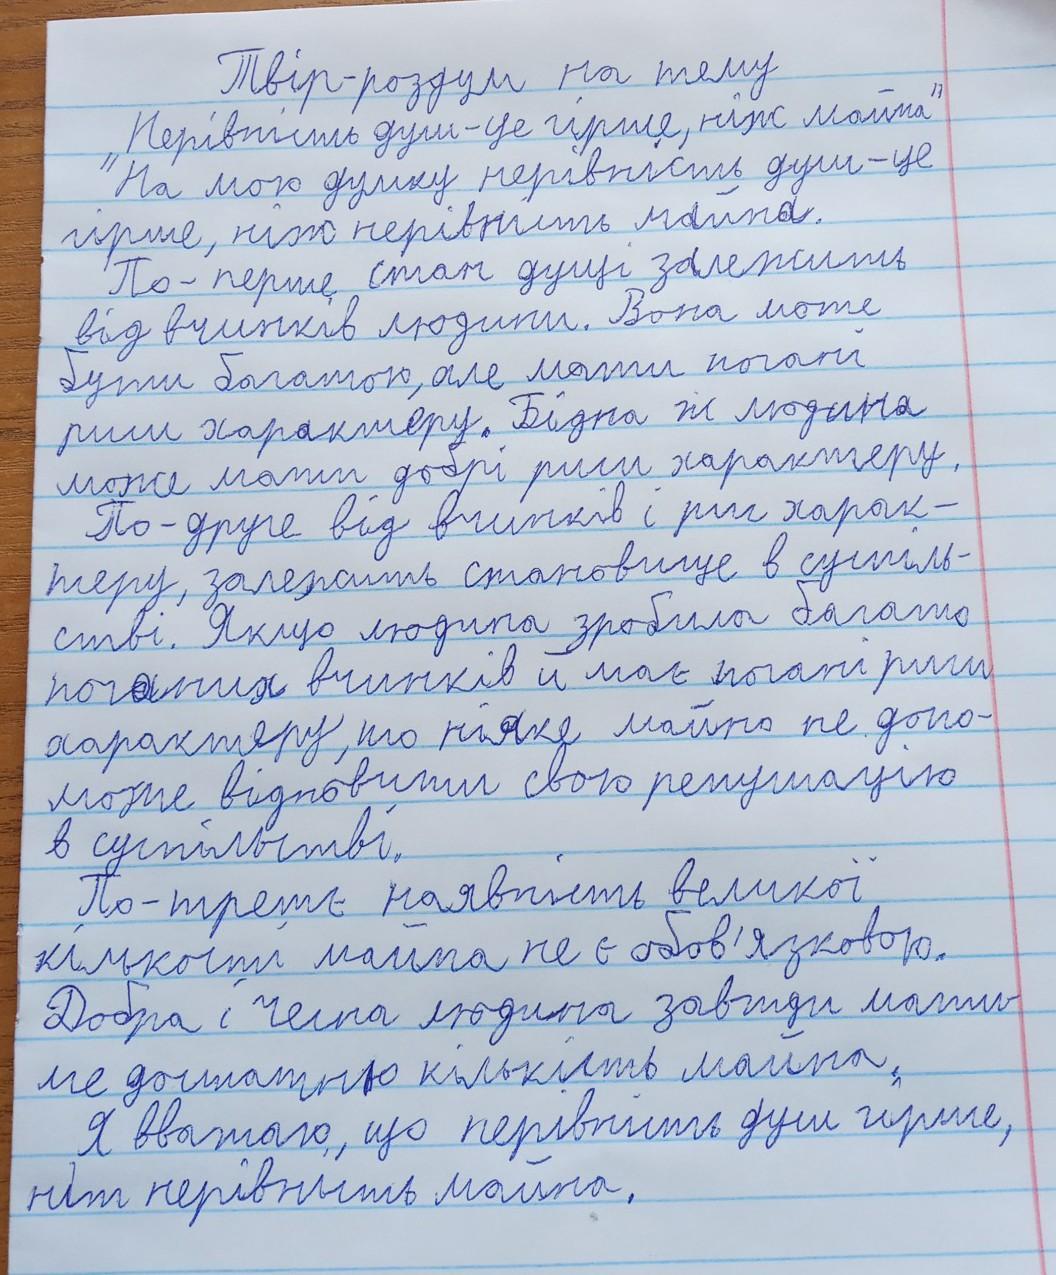 Твір-роздум на тему
"Нерівність душ-це гірше, ніж майна"
На мою думку нерівність душ-це
гірше, ніж нерівність майна.
По-перше стан душі залежить
від вчинків людини. Вона може
бути багатою, але мати погані
риси характеру. Бідна ж людина
може мати добрі риси характеру.
По-друге від вчинків і рис харак-
теру, залежить становище в суспіль-
стві. Якщо людина зробила багато
поганих вчинків й має погані риси
характеру, то ніяке майно не допо-
може відновити свою репутацію
в суспільстві.
По-третє наявність великої
кількості майна не є обов'язковою.
Добра і чесна людина завжди мати-
ме достатню кількість майна.
Я вважаю, що нерівність душ гірше,
ніж нерівність майна.